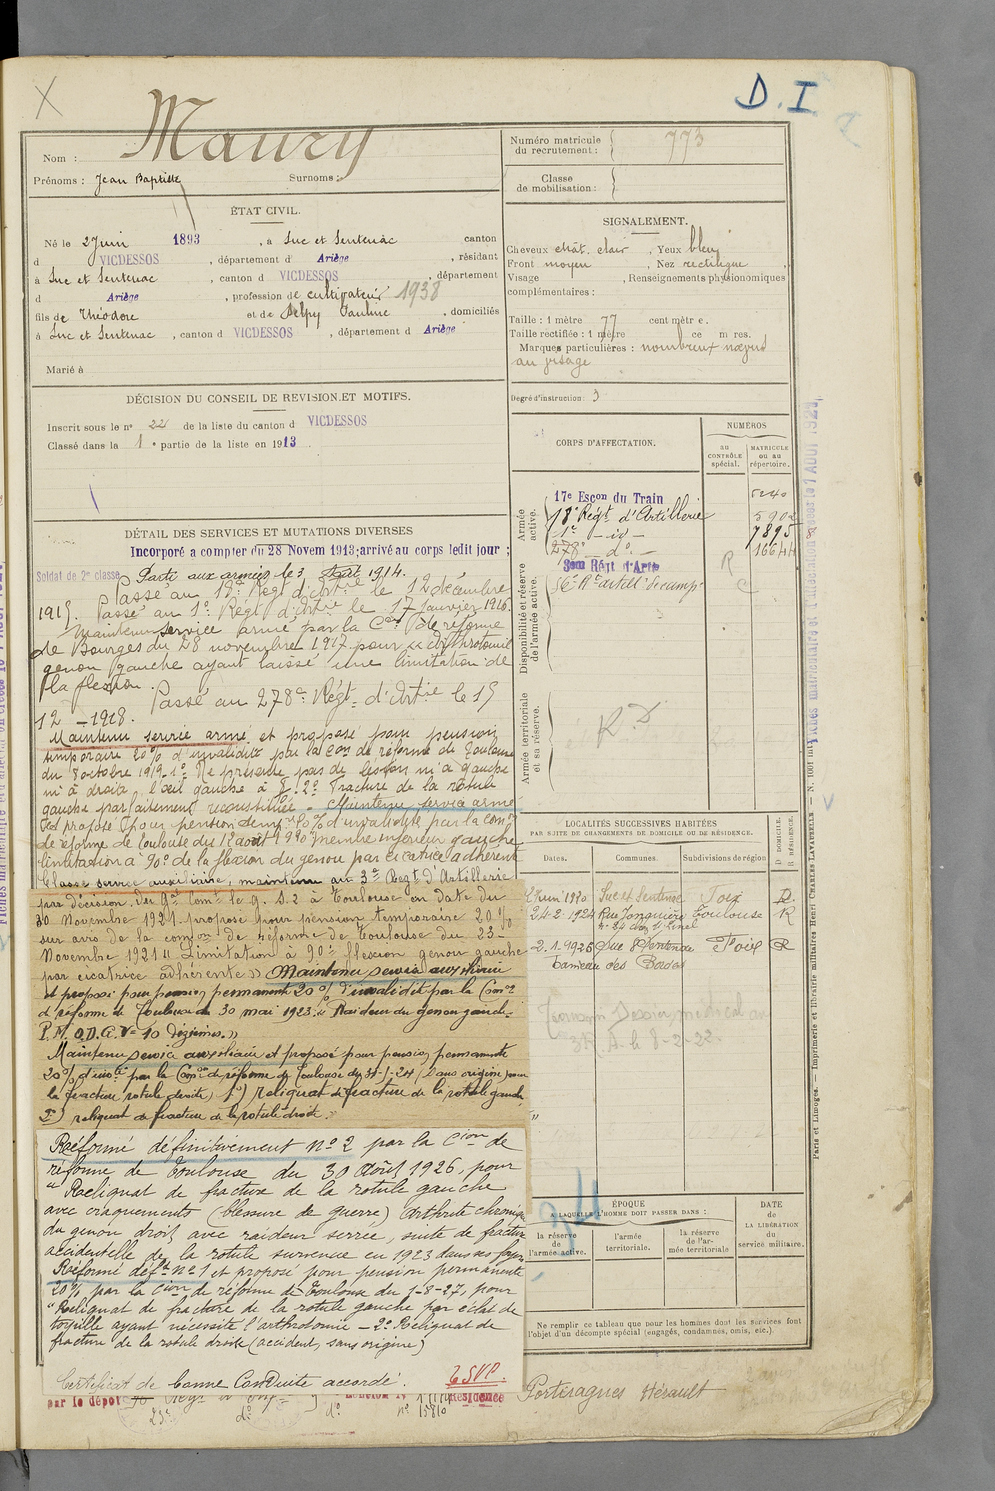 D. I.
Maury
Nom :
Prénoms : Jean Baptiste Surnoms :
Numéro matricule du recrutement : 773
Classe de mobilisation :
ÉTAT CIVIL.
Né le 2 Juin 1893, à Suc et Sentenac canton
d VICDESSOS, département d' Ariège, résidant
à Suc et Sentenac, canton d VICDESSOS, département
d Ariège, profession de cultivateur 1938
fils de Théodore et de Delpy Pauline, domiciliés
à Suc et Sentenac, canton d VICDESSOS, département d Ariège
Marié à
SIGNALEMENT.
Cheveux chât. clair, Yeux bleus
Front moyen, Nez rectiligne
Visage , Renseignements physionomiques
complémentaires :
Taille : 1 mètre 77 cent mètr e.
Taille rectifiée : 1 mètre ce m res.
Marques particulières : nombreux nœvus
au visage
Degré d'instruction : 3
DÉCISION DU CONSEIL DE REVISION ET MOTIFS.
Inscrit sous le n° 22 de la liste du canton d VICDESSOS
Classé dans la 1 e partie de la liste en 1913.
CORPS D'AFFECTATION.
NUMÉROS
AU CONTRÔLE spécial.
MATRICULE ou au répertoire.
Armée active.
17e Escon du Train 5240
18e Régt d'Artillerie 5902
1er - id - 7895
278e - do - 16644
3em Régt d'Arte
Disponibilité et réserve de l'armée active.
56e Rt artill de camp R C
Armée territoriale et sa réserve.
R D
DÉTAIL DES SERVICES ET MUTATIONS DIVERSES
Incorporé a compter du 28 Novem 1913; arrivé au corps ledit jour ;
Soldat de 2e classe Parti aux armées le 3 Août 1914.
Passé au 18e Régt d'Artie le 12 décembre
1915. Passé au 1er Régt d'Artie le 17 Janvier 1916.
Maintenu service armé par la Con de réforme
de Bourges du 28 novembre 1917 pour « arthrotomie
genou gauche ayant laissé une limitation de
la flexion. Passé au 278e Régt d'Artie le 15
12 - 1918.
Maintenu service armé et proposé pour pension
temporaire 20% d'invalidité par la Con de réforme de Toulouse
du 8 octobre 1919. 1° Ne présente pas de lésion ni à gauche
ni à droite l'œil gauche à 2° Fracture de la rotule
gauche parfaitement reconstituée - Maintenu service armé
et proposé pour pension temp. 10% d'invalidité par la Comon
de réforme de Toulouse du 12 août 1920 membre inférieur gauche
limitation à 90° de la flexion du genou par cicatrice adhérente
Classé service auxiliaire, maintenu au 3e Régt d'Artillerie
par décision du Gal Comt le G. S. 2 à Toulouse en date du
30 Novembre 1921. proposé pour pension temporaire 20%
sur avis de la comon de réforme de Toulouse du 23
Novembre 1921 « Limitation à 90° flexion genou gauche
par cicatrice adhérente » Maintenu service auxiliaire
et proposé pour pension permanente 20% d'invalidité par la Comon
d réforme de Toulouse du 30 mai 1923. « Raideur du genou gauche.
P. M. O.D.G.V = 10 dixièmes. »
Maintenu service auxiliaire et proposé pour pension permanente
20% d'invté par la Comon de réforme de Toulouse du 31-1-24 (Sans origine) pour
la fracture rotule droite) 1°) reliquat de fracture de la rotule gauche
2°) reliquat de fracture de la rotule droite »
Réformé définitivement N° 2 par la Cion de
réforme de Toulouse du 30 Août 1926, pour
« Reliquat de fracture de la rotule gauche
avec craquements (blessure de guerre) Arthrite chronique
du genou droit avec raideur serrée, suite de fracture
accidentelle de la rotule survenue en 1923 dans ses foyers
Réformé déft N° 1 et proposé pour pension permanente
20% par la Cion de réforme de Toulouse du 5-8-27, pour
« Reliquat de fracture de la rotule gauche par éclat de
torpille ayant nécessité l'arthrotomie - 2° Reliquat de
fracture de la rotule droite (accident, sans origine)
Certificat de bonne Conduite accordé.
TSVP.
par le dépôt
Résidence
23e do do n° 15810
LOCALITÉS SUCCESSIVES HABITÉES
PAR SUITE DE CHANGEMENTS DE DOMICILE OU DE RÉSIDENCE.
Dates. Communes. Subdivisions de région
D DOMICILE. R RÉSIDENCE.
2 Juin 1920 Suc et Sentenac Foix D
24-2 1924 Rue Jonquière Toulouse R
-2.1.1926 Suc & Sentenac Foix R
hameau des Bordes
ÉPOQUE
A LAQUELLE L'HOMME DOIT PASSER DANS :
la réserve de l'armée active.
l'armée territoriale.
la réserve de l'armée territoriale
DATE de LA LIBÉRATION du service militaire.
Ne remplir ce tableau que pour les hommes dont les services font
l'objet d'un décompte spécial (engagés, condamnés, omis, etc.).
Portiragnes Hérault
Paris et Limoges. — Imprimerie et librairie militaires Henri CHARLES-LAVAUZELLE — N. 1001 int.